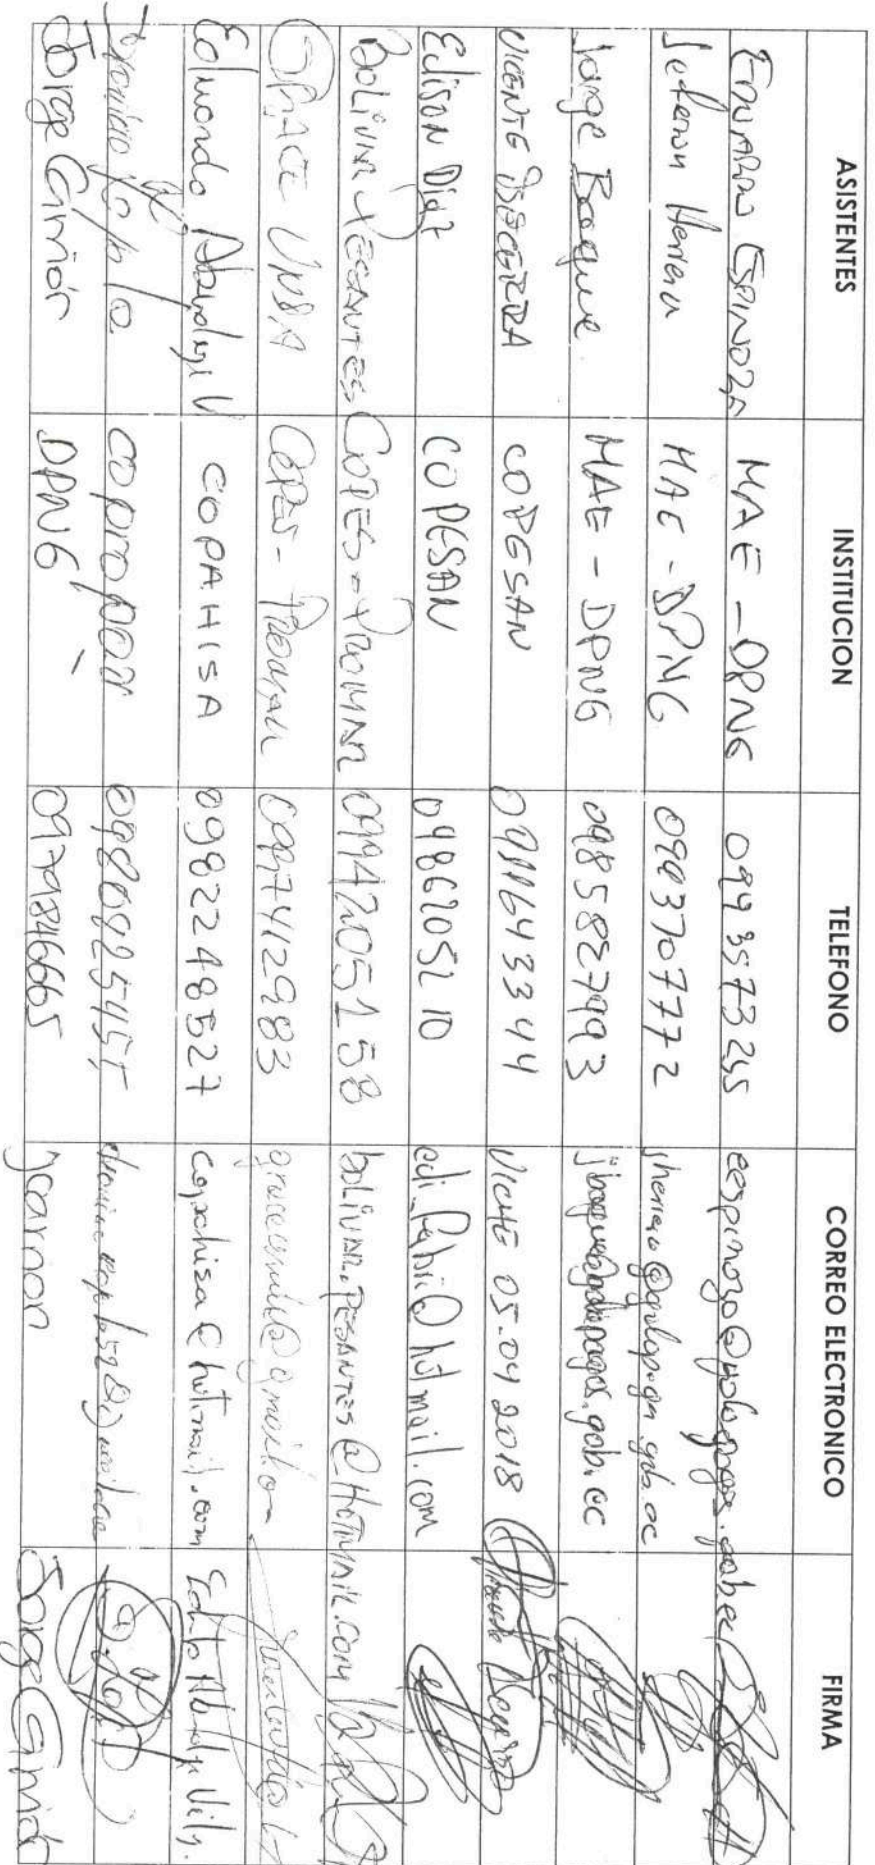 ASISTENTES INSTITUCION TELEFONO CORREO ELECTRONICO FIRMA
EDUARDO ESPINOZA MAE - DPNG 0993573245 eespinoza@galapagos.gob.ec
Jeferson Herrera MAE - DPNG 0993707772 jherrera@galapagos.gob.ec
Jorge Baque MAE - DPNG 0985827993 jbaque@galapagos.gob.ec
VICENTE BECERRA COPESAN 0911643344 VICHE 05-04 2018
Edison Diaz COPESAN 0986205210 edi_fabri@hotmail.com
BOLIVAR PESANTES COPES-PROMAR 0994205158 BOLIVAR.PESANTES@HOTMAIL.COM
GRACE UNDA COPES-PROMAR 0997412983
Edmundo COPAHISA 0982248527 copahisa@hotmail.com
copropag 0986925455
Jorge Carrión DPNG 0979846665 jcarrion Jorge Carrión